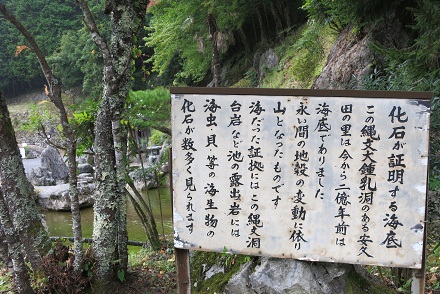 化石が証明する海底
この縄文大鍾乳洞のある安久
田の里は今から二億年前は
海底でありました
永い間の地殻の変動に依り
山となったものです
海だった証拠にはこの縄文洞
台岩など池の露出岩には
海虫、貝等の海生物の
化石が数多く見られます